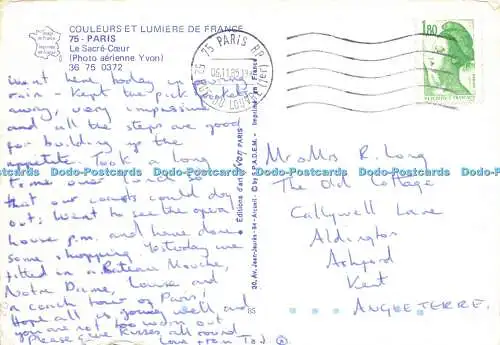 COULEURS ET LUMIÈRE DE FRANCE
75 - PARIS
Le Sacré-Cœur
(Photo aérienne Yvon)
36 75 0372
Went here today in
rain - Kept the pick pockets
away, very impressive
and all the steps are good
for building up the
appetite. Took a long
time over lunch so
that our coats could dry
out; went to see the opera
house p.m. and have done
some shopping. Yesterday we
fitted in a Bateau Mouche,
Notre Dame, Louvre and
a coach tour of Paris,
Hope all is going well and
you are not too worn out
Please give kisses all round
Love from
75 PARIS RP
1,80
Mr & Mrs R. Long
The Old Cottage
Callywell Lane
Aldington
Ashford
Kent
ANGLETERRE.
Editions d'art Yvon PARIS
Imprimé en France
20, Av. Jean-Jaurès - 94 - Arcueil - © by S.P.A.D.E.M.
85
Dodo-Postcards Dodo-Postcards Dodo-Postcards Dodo-Postcards